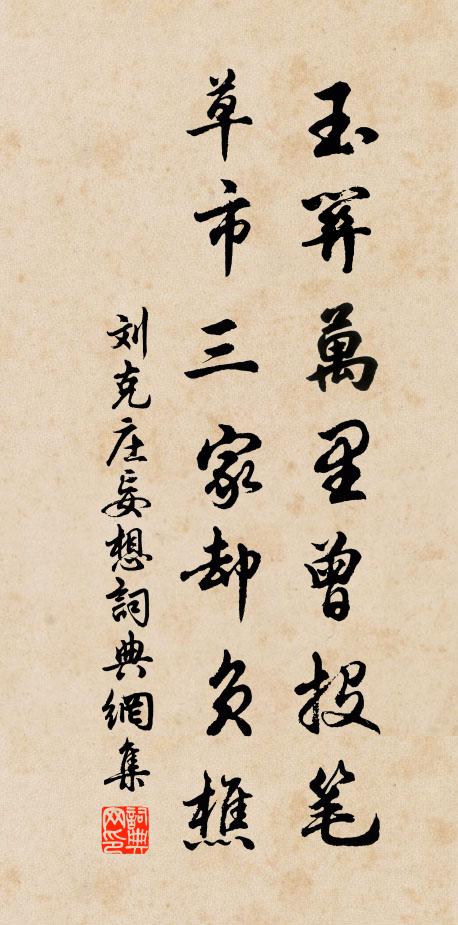 玉关萬里曾投笔
草市三家却负樵
刘克庄妄想詞典網集
詞典网印